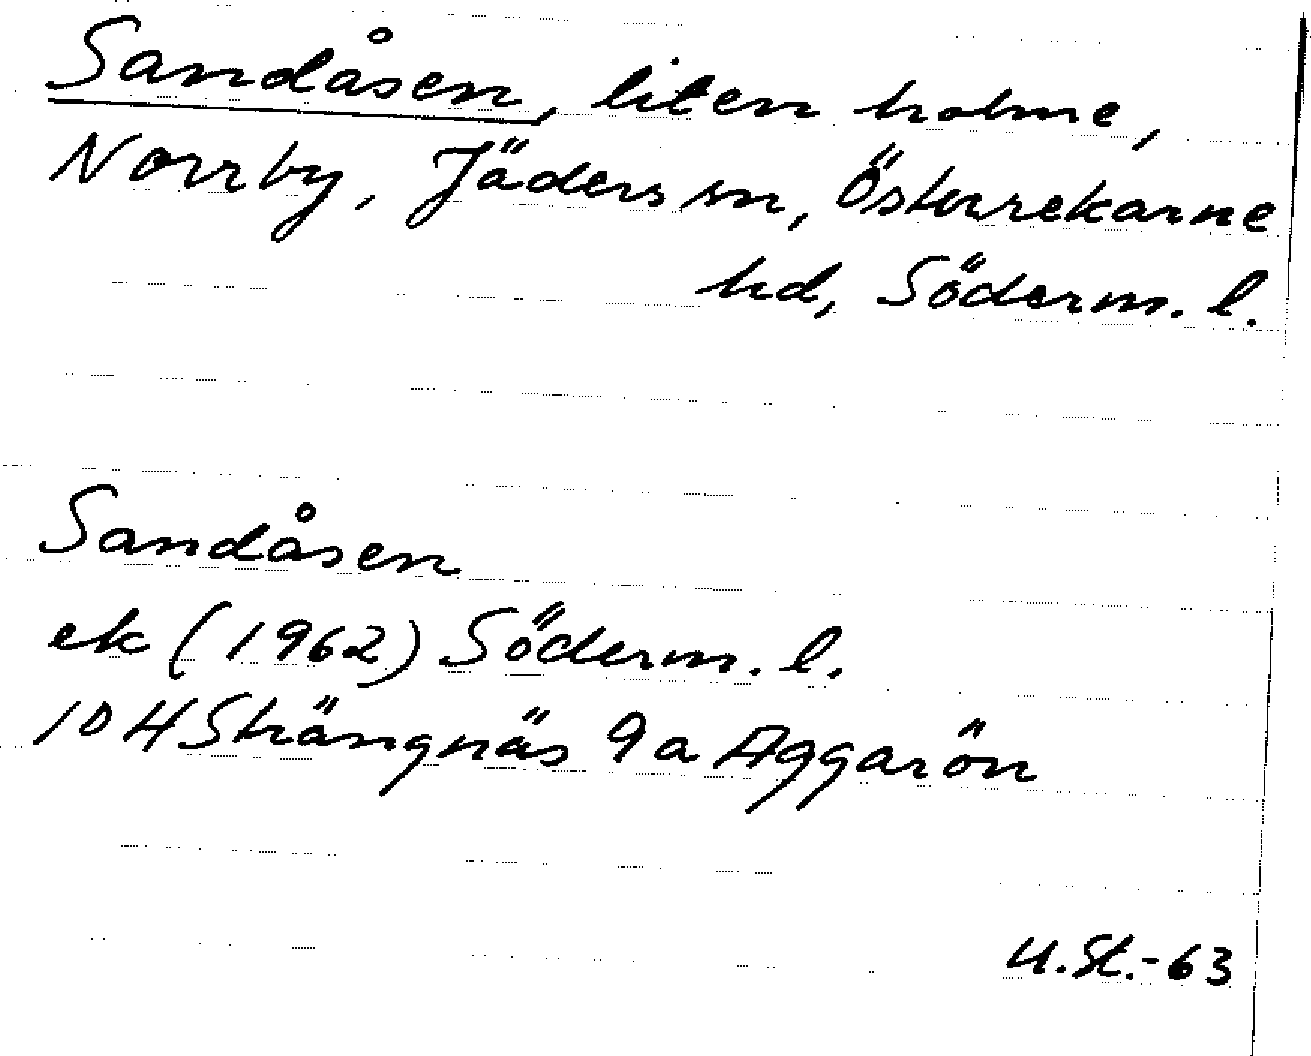 Sandåsen, liten holme,
Norrby, Jäders sn, Österrekarne
hd, Söderm. l.
Sandåsen
ek (1962) Söderm. l.
10 H Strängnäs 9 a Aggarön
U.St.-63